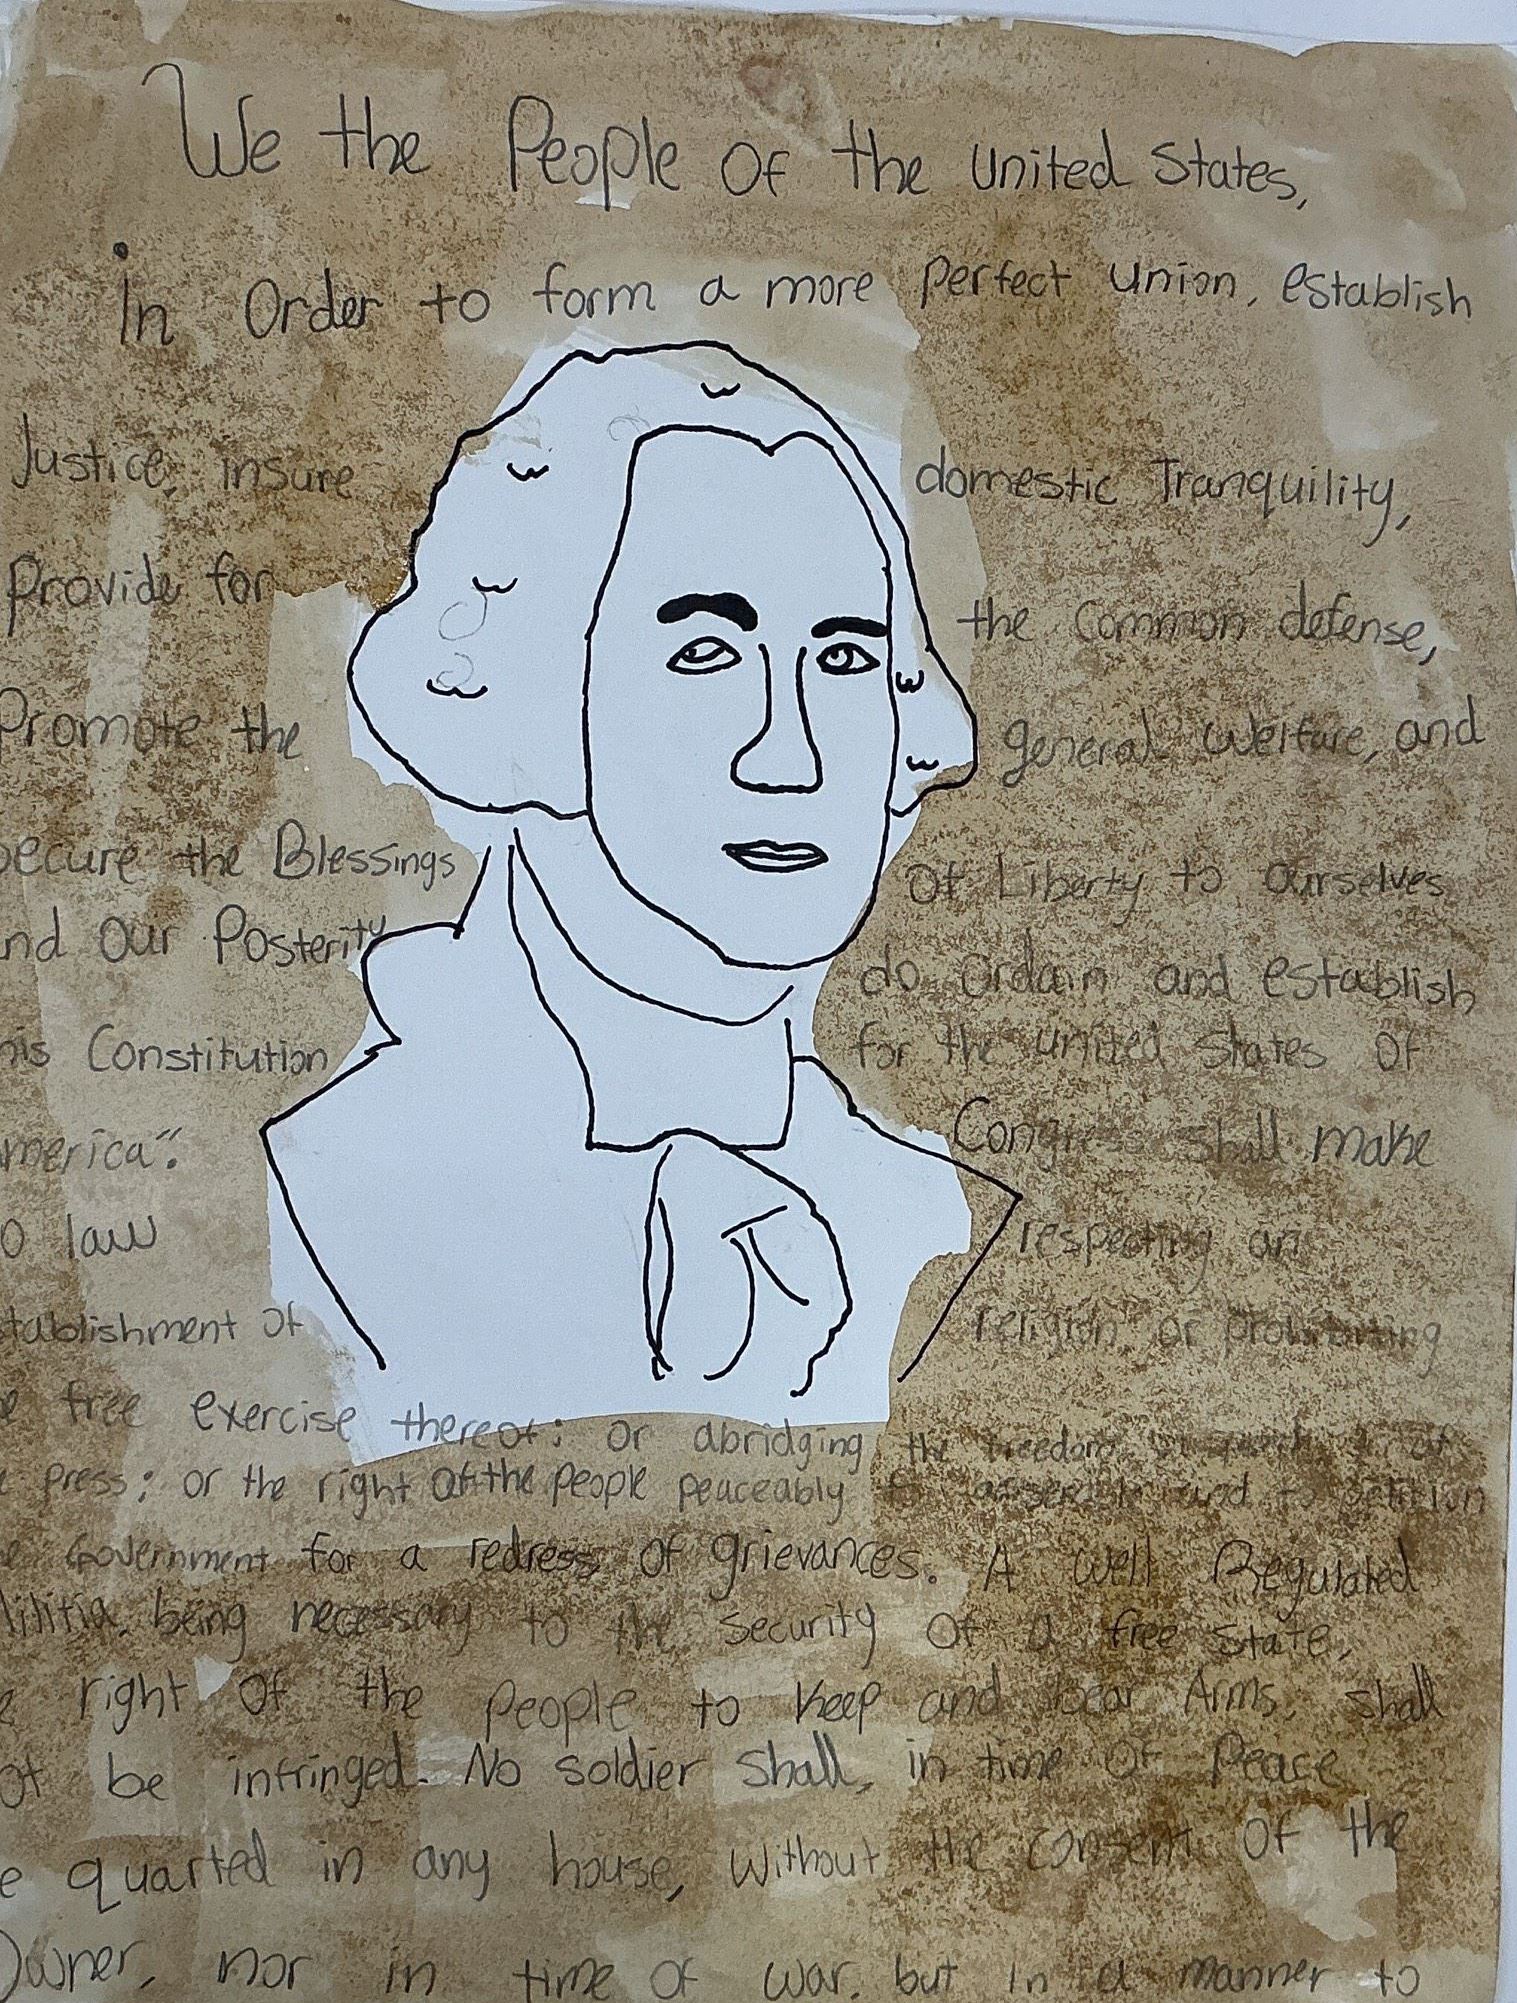 We the People Of the United States,
in Order to form a more Perfect Union, establish
Justice, insure domestic Tranquility,
Provide for the Common defense,
Promote the general Welfare, and
secure the Blessings Of Liberty to Ourselves
nd Our Posterity do Ordain and establish
his Constitution for the United States Of
merica". Congress shall make
o law respecting an
tablishment Of religion or prohibiting
e free exercise thereof; or abridging the freedom
e press; or the right Of the people peaceably to assemble and to petition
e Government for a redress of grievances. A Well Regulated
ilitia, being necessary to the security Of a free State,
e right Of the People to Keep and bear Arms, shall
ot be infringed. No soldier shall, in time Of Peace
e quarted in any house, Without the consent Of the
Owner, nor in time Of war, but in a manner to